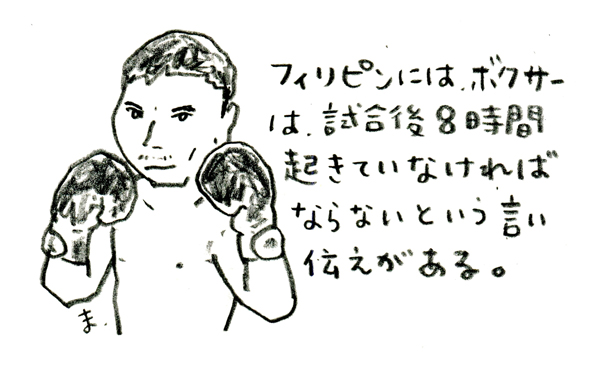 フィリピンには、ボクサー
は、試合後8時間
起きていなければ
ならないという言い
伝えがある。
ま.